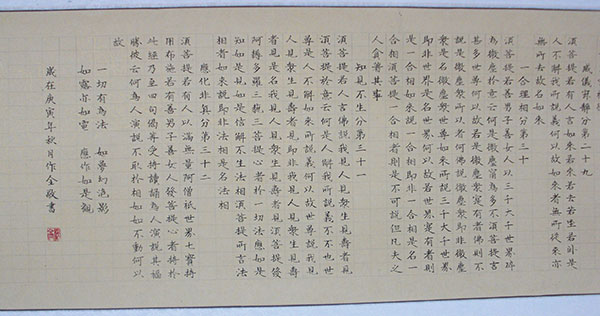 威儀寂靜分第二十九
須菩提若有人言如來若來若去若坐若卧是
人不解我所說義何以故如來者無所從來亦
無所去故名如來
一合理相分第三十
須菩提若善男子善女人以三千大千世界碎
為微塵於意云何是微塵衆寧為多不須菩提言
甚多世尊何以故若是微塵衆實有者佛則不
說是微塵衆所以者何佛說微塵衆即非微塵
衆是名微塵衆世尊如來所說三千大千世界
即非世界是名世界何以故若世界實有者則
是一合相如來說一合相即非一合相是名一
合相須菩提一合相者則是不可說但凡夫之
人貪著其事
知見不生分第三十一
須菩提若人言佛說我見人見衆生見壽者見
須菩提於意云何是人解我所說義不不也世
尊是人不解如來所說義何以故世尊說我見
人見衆生見壽者見即非我見人見衆生見壽
者見是名我見人見衆生見壽者見須菩提發
阿耨多羅三藐三菩提心者於一切法應如是
知如是見如是信解不生法相須菩提所言法
相者如來說即非法相是名法相
應化非真分第三十二
須菩提若有人以滿無量阿僧祇世界七寶持
用布施若有善男子善女人發菩提心者持於
此經乃至四句偈等受持讀誦為人演說其福
勝彼云何為人演說不取於相如如不動何以
故
一切有為法 如夢幻泡影
如露亦如電 應作如是觀
歲在庚寅年秋月作金敬書